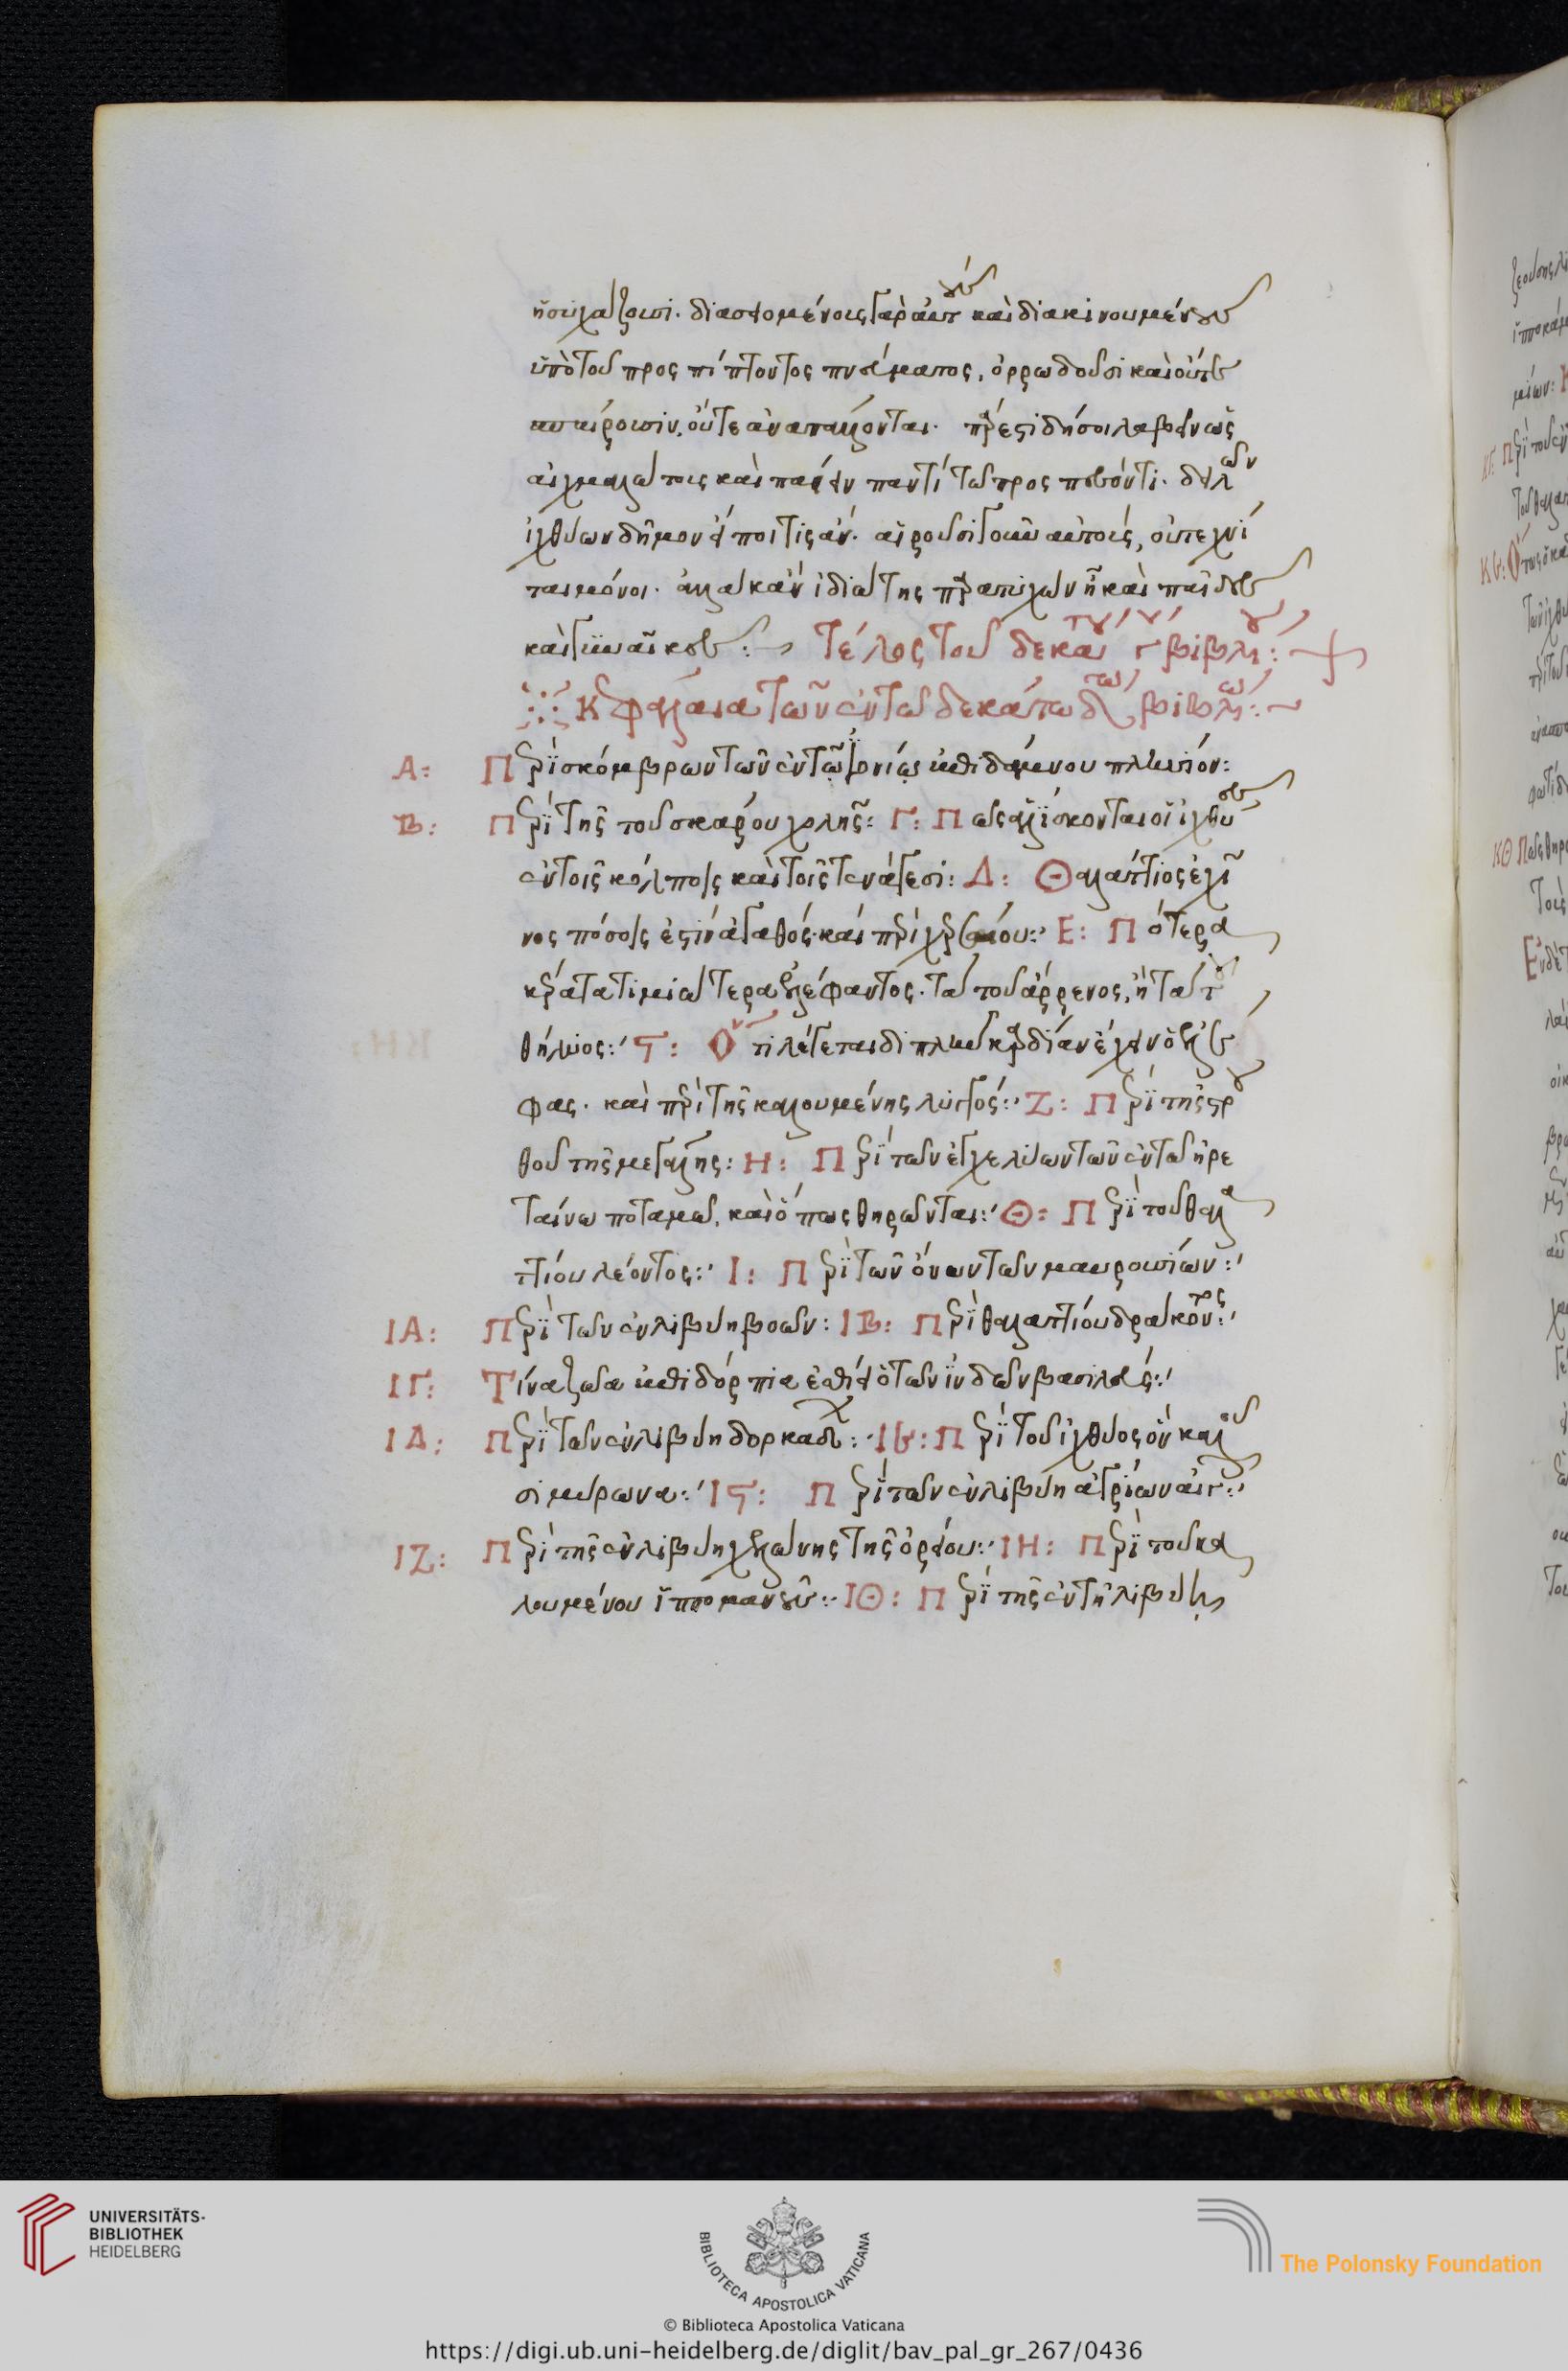 ἡσυχάζουσι. διασειομένους γὰρ αὐτοὺς καὶ διακινουμένους
ὑπὸ τοῦ προσπίπτοντος πνεύματος, ὀρρωδοῦσι καὶ οὔτε
ἀπαίρουσιν, οὔτε ἀναπαύονται. πάρεστι δή σοι λαβεῖν ὡς
αἰχμαλώτους καὶ παίειν παντὶ τῷ προσπεσόντι. δειλῶν
ἰχθύων δῆμον εἴποι τις ἄν. αἱροῦσι γοῦν αὐτοὺς, οὐ τεχνί
ται μόνοι. ἀλλὰ κἂν ἰδιώτης παρατυχὼν ᾖ καὶ παῖδες
καὶ γυναῖκες: Τέλος τοῦ δεκάτου τρίτου βιβλίου:
Κεφάλαια τῶν ἐν τῷ δεκάτῳ τετάρτῳ βιβλίῳ:
Α: Περὶ σκόμβρων τῶν ἐν τῷ ἰονίῳ καὶ διδαμένου πλησίον:
Β: Περὶ τῆς τοῦ σκάρου χολῆς: Γ: Πῶς ἁλίσκονται οἱ ἰχθύες
ἐν τοῖς κόλποις καὶ τοῖς τενάγεσι: Δ: Θαλάττιος ἐχῖ
νος πόσοις ἐστὶν ἀγαθός. καὶ περὶ χερσαίου: Ε: Πότερα
κέρατα τιμιώτερα ἐλέφαντος. τὰ τοῦ ἄρρενος, ἢ τὰ τοῦ
θήλεος: Ϛ: Ὅτι λέγεται διπλῆν καρδίαν ἔχειν ὁ ἐλέ
φας. καὶ περὶ τῆς καλουμένης λυγγός: Ζ: Περὶ τῆς στρου
θοῦ τῆς μεγάλης: Η: Περὶ τῶν ἐγχελύων τῶν ἐν τῷ ἠρε
ταίνῳ ποταμῷ, καὶ ὅπως θηρῶνται: Θ: Περὶ τοῦ θαλα
ττίου λέοντος: Ι: Περὶ τῶν ὄνων τῶν μαυρουσίων:
ΙΑ: Περὶ τῶν ἐν λιβύῃ βοῶν: ΙΒ: Περὶ θαλαττίου δράκοντος:
ΙΓ: Τίνα ζῶα καὶ ἐπιδόρπια ἐσθίει ὁ τῶν ἰνδῶν βασιλεύς:
ΙΔ: Περὶ τῶν ἐν λιβύῃ δορκάδων: ΙΕ: Περὶ τοῦ ἰχθύος ὃν καλοῦ
σι μύρωνα: ΙϚ: Περὶ τῶν ἐν λιβύῃ ἀγρίων αἰγῶν:
ΙΖ: Περὶ τῆς ἐν λιβύῃ χελώνης τῆς ὀρείου: ΙΗ: Περὶ τοῦ κα
λουμένου ἱππομανοῦς: ΙΘ: Περὶ τῆς ἐν τῇ λιβύῃ
UNIVERSITÄTS-
BIBLIOTHEK
HEIDELBERG
BIBLIOTECA APOSTOLICA VATICANA
© Biblioteca Apostolica Vaticana
The Polonsky Foundation
https://digi.ub.uni-heidelberg.de/diglit/bav_pal_gr_267/0436